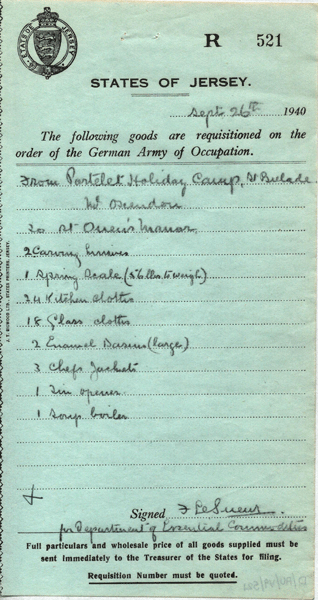 STATES OF JERSEY
R 521
STATES OF JERSEY.
Sept 26th 1940
The following goods are requisitioned on the
order of the German Army of Occupation.
From Portelet Holiday Camp, St Brelade
Mr
To St Ouen's Manor
2 Carving Knives
1 Spring Scale (56 lbs to weigh)
24 Kitchen cloths
18 Glass cloths
2 Enamel Basins (large)
3 Chefs Jackets
1 Tin opener
1 Soup boiler
Signed F Le Sueur.
for Department of Essential Commodities
Full particulars and wholesale price of all goods supplied must be
sent immediately to the Treasurer of the States for filing.
Requisition Number must be quoted.